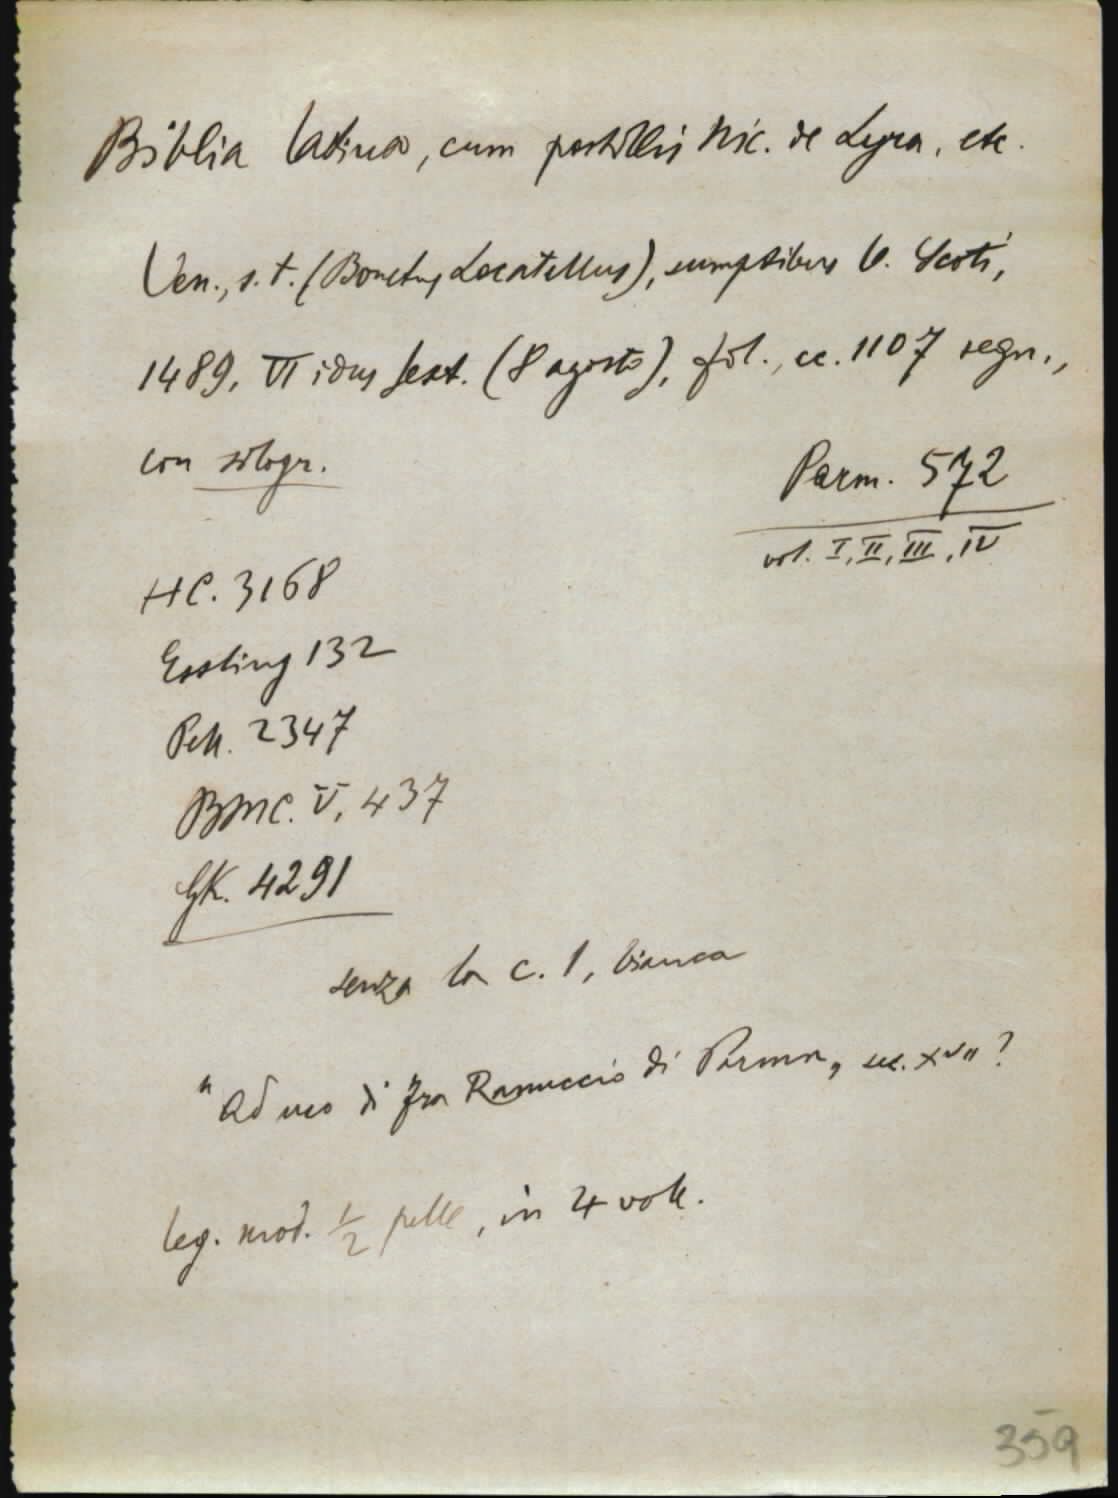 Biblia latina, cum postillis Nic. de Lyra, etc.
Ven., s. t. (Bonetus Locatellus), sumptibus O. Scoti,
1489, VI idus sext. (8 agosto), fol., cc. 1107 segn.,
con silogr.
Parm. 572
vol. I, II, III, IV
HC. 3168
Essling 132
Pell. 2347
BMC. V, 437
GK. 4291
senza la c. 1, bianca
"Ad uso di Fra Ranuccio di Parma„ sec. XVII?
leg. mod. 1/2 pelle, in 4 voll.
359